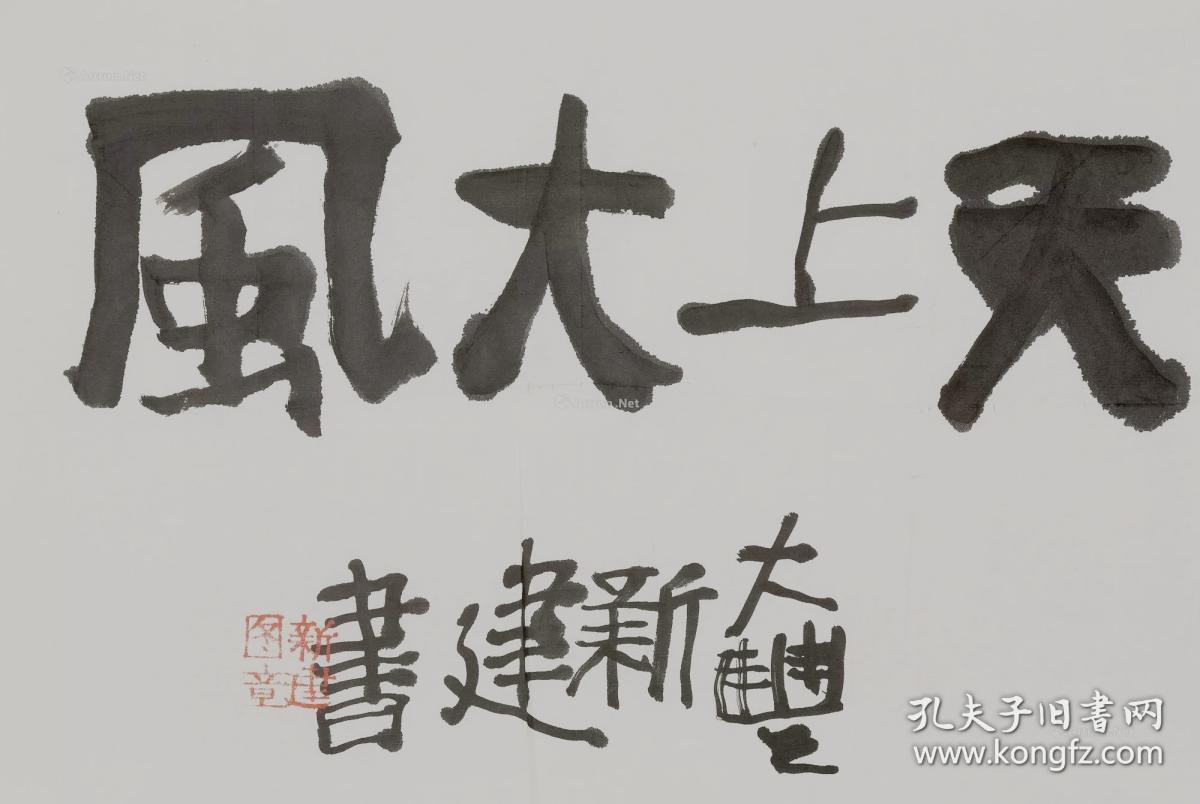 天上大風
大豐之
新建書
新建图章
孔夫子旧書网
www.kongfz.com